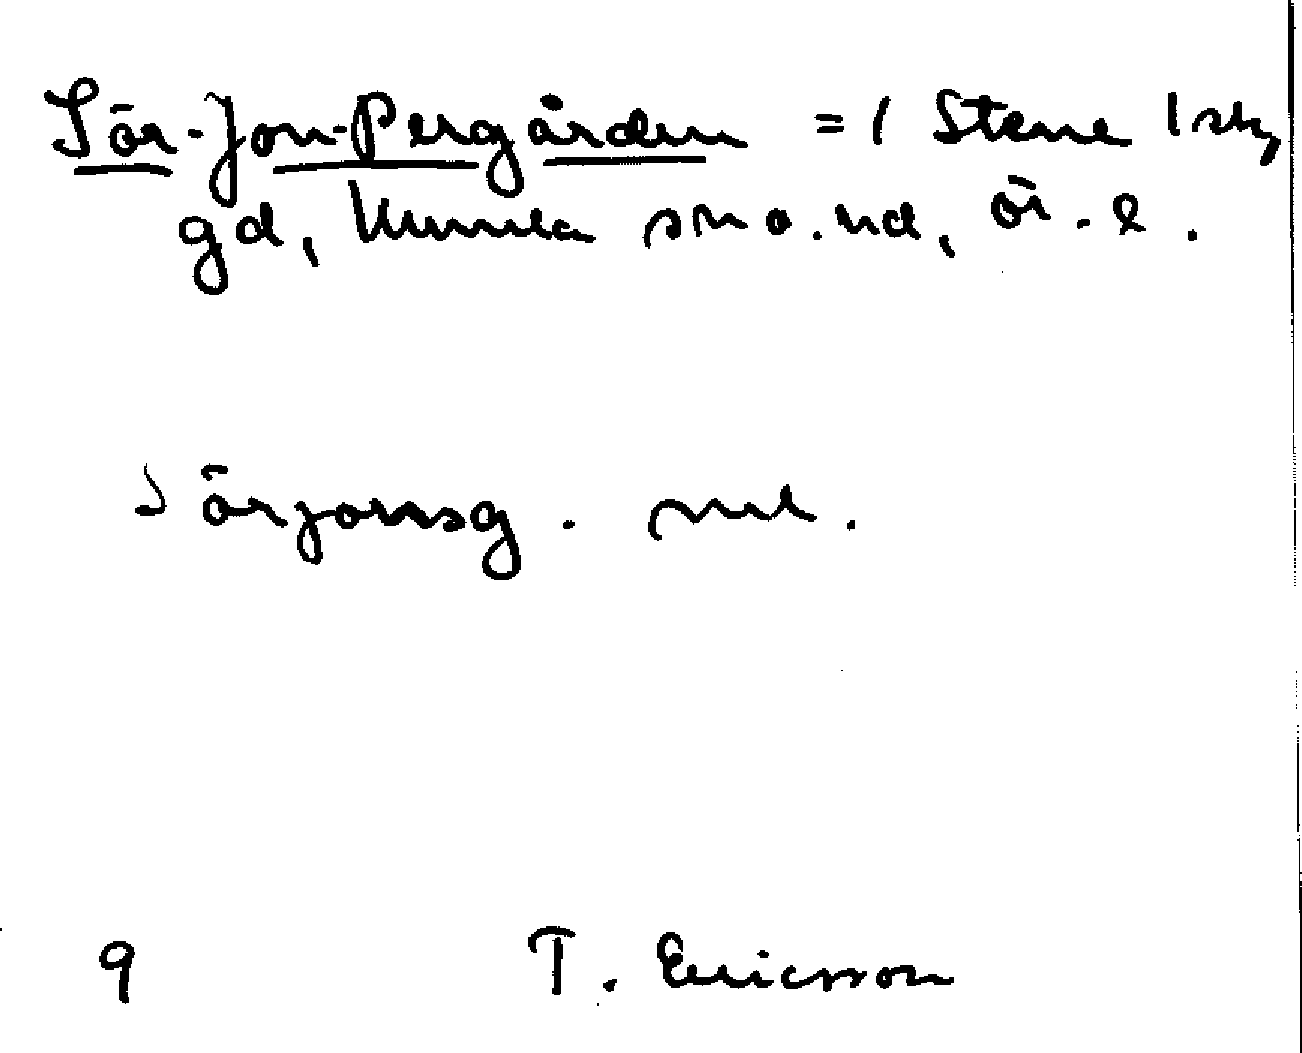 Sör-Jon-Pergården = 1 Stene 1 sk,
gd, Kumla sn o. hd, Ör. l.
Sörjonsg.
9 T. Ericsson